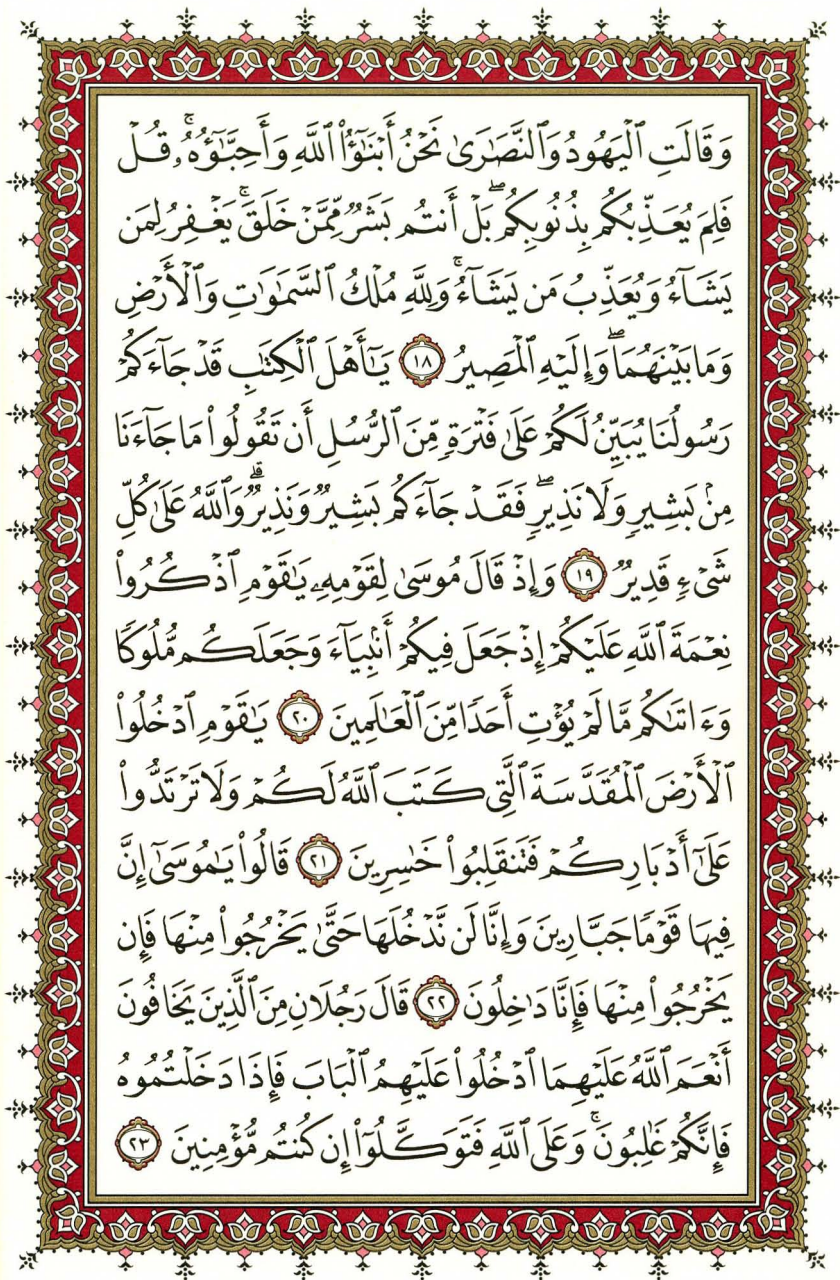 وَقَالَتِ ٱلْيَهُودُ وَٱلنَّصَٰرَىٰ نَحْنُ أَبْنَٰٓؤُا۟ ٱللَّهِ وَأَحِبَّٰٓؤُهُۥ ۚ قُلْ
فَلِمَ يُعَذِّبُكُم بِذُنُوبِكُم ۖ بَلْ أَنتُم بَشَرٌ مِّمَّنْ خَلَقَ ۚ يَغْفِرُ لِمَن
يَشَآءُ وَيُعَذِّبُ مَن يَشَآءُ ۚ وَلِلَّهِ مُلْكُ ٱلسَّمَٰوَٰتِ وَٱلْأَرْضِ
وَمَا بَيْنَهُمَا ۖ وَإِلَيْهِ ٱلْمَصِيرُ ١٨ يَٰٓأَهْلَ ٱلْكِتَٰبِ قَدْ جَآءَكُمْ
رَسُولُنَا يُبَيِّنُ لَكُمْ عَلَىٰ فَتْرَةٍ مِّنَ ٱلرُّسُلِ أَن تَقُولُوا۟ مَا جَآءَنَا
مِنۢ بَشِيرٍ وَلَا نَذِيرٍ ۖ فَقَدْ جَآءَكُم بَشِيرٌ وَنَذِيرٌ ۗ وَٱللَّهُ عَلَىٰ كُلِّ
شَىْءٍ قَدِيرٌ ١٩ وَإِذْ قَالَ مُوسَىٰ لِقَوْمِهِۦ يَٰقَوْمِ ٱذْكُرُوا۟
نِعْمَةَ ٱللَّهِ عَلَيْكُمْ إِذْ جَعَلَ فِيكُمْ أَنۢبِيَآءَ وَجَعَلَكُم مُّلُوكًا
وَءَاتَىٰكُم مَّا لَمْ يُؤْتِ أَحَدًا مِّنَ ٱلْعَٰلَمِينَ ٢٠ يَٰقَوْمِ ٱدْخُلُوا۟
ٱلْأَرْضَ ٱلْمُقَدَّسَةَ ٱلَّتِى كَتَبَ ٱللَّهُ لَكُمْ وَلَا تَرْتَدُّوا۟
عَلَىٰٓ أَدْبَارِكُمْ فَتَنقَلِبُوا۟ خَٰسِرِينَ ٢١ قَالُوا۟ يَٰمُوسَىٰٓ إِنَّ
فِيهَا قَوْمًا جَبَّارِينَ وَإِنَّا لَن نَّدْخُلَهَا حَتَّىٰ يَخْرُجُوا۟ مِنْهَا فَإِن
يَخْرُجُوا۟ مِنْهَا فَإِنَّا دَٰخِلُونَ ٢٢ قَالَ رَجُلَانِ مِنَ ٱلَّذِينَ يَخَافُونَ
أَنْعَمَ ٱللَّهُ عَلَيْهِمَا ٱدْخُلُوا۟ عَلَيْهِمُ ٱلْبَابَ فَإِذَا دَخَلْتُمُوهُ
فَإِنَّكُمْ غَٰلِبُونَ ۚ وَعَلَى ٱللَّهِ فَتَوَكَّلُوٓا۟ إِن كُنتُم مُّؤْمِنِينَ ٢٣